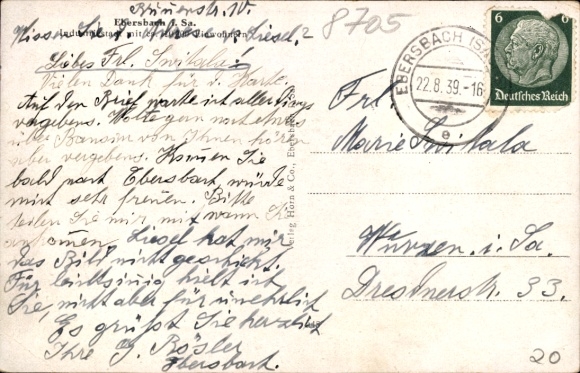 Ebersbach i. Sa.
8705
Liebes Frl. Switala.
Vielen Dank für d. Karte.
Auf den Brief warte ich allerdings
vergebens. Wollte gern mal etwas
über Bansin von Ihnen hören
aber vergebens. Kommen Sie
bald nach Ebersbach, würde
mich sehr freuen. Bitte
teilen Sie mir mit wann Sie
Liesel hat mir
das Bild nicht geschickt.
Für leichtsinnig hielt ich
Sie, nicht aber für unehrlich
Es grüßt Sie herzlich
Ihre J. Rösler
Ebersbach.
Verlag Horn & Co., Ebersbach
EBERSBACH (SA
22.8.39.-16
e
6 6
Deutsches Reich
Frl.
Marie Switala
Wurzen i. Sa.
Dresdnerstr. 33.
20